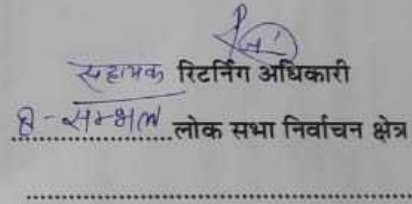 सहायक रिटर्निंग अधिकारी
8-सम्भल लोक सभा निर्वाचन क्षेत्र